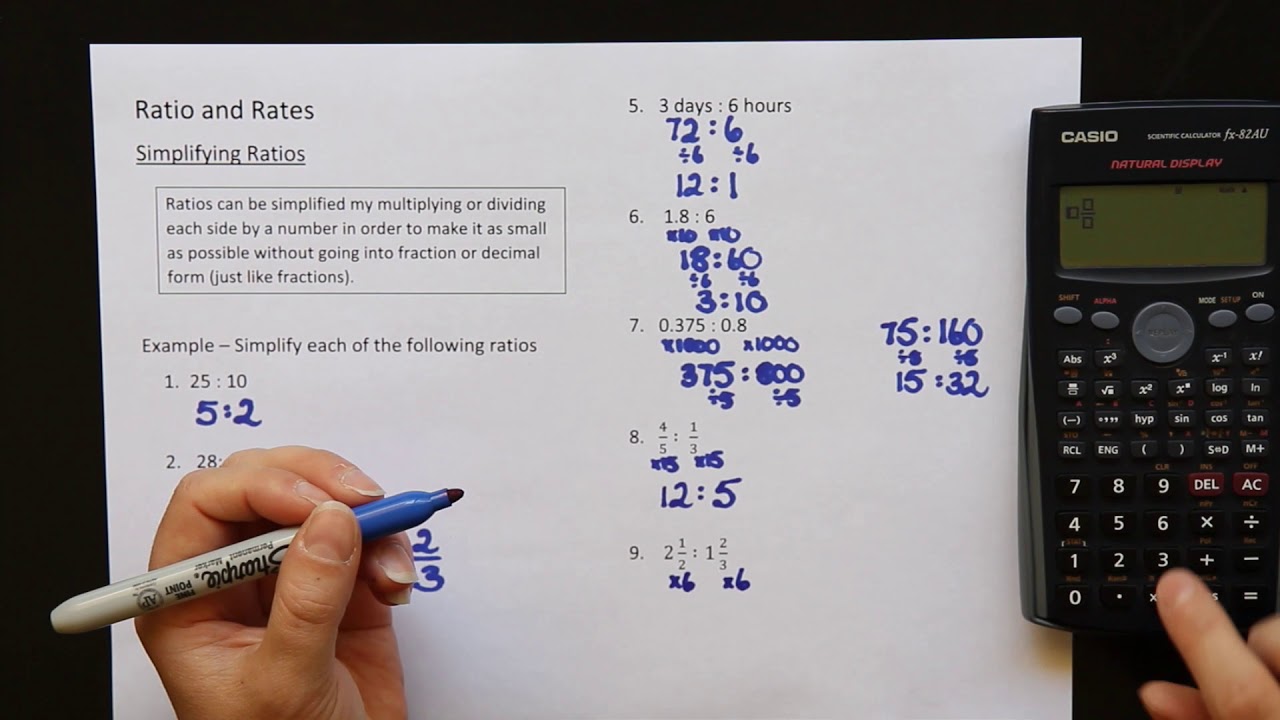 Ratio and Rates
Simplifying Ratios
Ratios can be simplified my multiplying or dividing
each side by a number in order to make it as small
as possible without going into fraction or decimal
form (just like fractions).
Example – Simplify each of the following ratios
1. 25 : 10
5:2
2. 28:
2
3
5. 3 days : 6 hours
72:6
÷6 ÷6
12:1
6. 1.8 : 6
×10 ×10
18:60
÷6 ÷6
3:10
7. 0.375 : 0.8
×1000 ×1000
375:800
÷5 ÷5
75:160
÷5 ÷5
15:32
8. 4/5 : 1/3
×15 ×15
12:5
9. 2 1/2 : 1 2/3
×6 ×6
Sharpie
Permanent Marker
FINE
POINT
AP
CASIO
SCIENTIFIC CALCULATOR fx-82AU
NATURAL DISPLAY
SHIFT ALPHA MODE SETUP ON
REPLAY
Abs x³ x⁻¹ x!
√ x² log ln
(−) hyp sin cos tan
STO
RCL ENG ( ) S⇔D M+
CLR INS OFF
7 8 9 DEL AC
4 5 6 × ÷
1 2 3 + −
0 . =